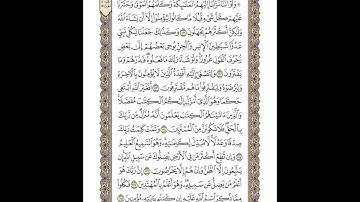 ۞ وَلَوْ أَنَّنَا نَزَّلْنَا إِلَيْهِمُ الْمَلَائِكَةَ وَكَلَّمَهُمُ الْمَوْتَىٰ وَحَشَرْنَا
عَلَيْهِمْ كُلَّ شَيْءٍ قُبُلًا مَّا كَانُوا لِيُؤْمِنُوا إِلَّا أَن يَشَاءَ اللَّهُ
وَلَٰكِنَّ أَكْثَرَهُمْ يَجْهَلُونَ ۝ وَكَذَٰلِكَ جَعَلْنَا لِكُلِّ نَبِيٍّ
عَدُوًّا شَيَاطِينَ الْإِنسِ وَالْجِنِّ يُوحِي بَعْضُهُمْ إِلَىٰ بَعْضٍ
زُخْرُفَ الْقَوْلِ غُرُورًا وَلَوْ شَاءَ رَبُّكَ مَا فَعَلُوهُ فَذَرْهُمْ وَمَا
يَفْتَرُونَ ۝ وَلِتَصْغَىٰ إِلَيْهِ أَفْئِدَةُ الَّذِينَ لَا يُؤْمِنُونَ بِالْآخِرَةِ
وَلِيَرْضَوْهُ وَلِيَقْتَرِفُوا مَا هُم مُّقْتَرِفُونَ ۝ أَفَغَيْرَ اللَّهِ أَبْتَغِي
حَكَمًا وَهُوَ الَّذِي أَنزَلَ إِلَيْكُمُ الْكِتَابَ مُفَصَّلًا
وَالَّذِينَ آتَيْنَاهُمُ الْكِتَابَ يَعْلَمُونَ أَنَّهُ مُنَزَّلٌ مِّن رَّبِّكَ
بِالْحَقِّ فَلَا تَكُونَنَّ مِنَ الْمُمْتَرِينَ ۝ وَتَمَّتْ كَلِمَتُ رَبِّكَ
صِدْقًا وَعَدْلًا لَّا مُبَدِّلَ لِكَلِمَاتِهِ وَهُوَ السَّمِيعُ الْعَلِيمُ
۝ وَإِن تُطِعْ أَكْثَرَ مَن فِي الْأَرْضِ يُضِلُّوكَ عَن سَبِيلِ اللَّهِ إِن
يَتَّبِعُونَ إِلَّا الظَّنَّ وَإِنْ هُمْ إِلَّا يَخْرُصُونَ ۝ إِنَّ رَبَّكَ هُوَ
أَعْلَمُ مَن يَضِلُّ عَن سَبِيلِهِ وَهُوَ أَعْلَمُ بِالْمُهْتَدِينَ ۝ فَكُلُوا
مِمَّا ذُكِرَ اسْمُ اللَّهِ عَلَيْهِ إِن كُنتُم بِآيَاتِهِ مُؤْمِنِينَ ۝